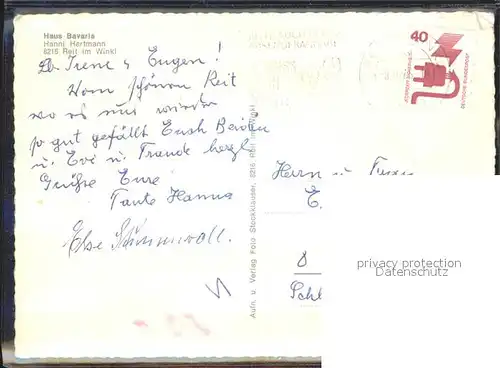 Haus Bavaria
Hanni Hartmann
8216 Reit im Winkl
Irene & Eugen!
Vom schönen Reit
wo es uns wieder
so gut gefällt Euch Beiden
u. Evi u. Traude herzl.
Grüße Eure
Tante Hanna
Else
Aufn. u. Verlag Foto Stockklauser, 8216 Reit im Winkl
40
DEUTSCHE BUNDESPOST
Herrn u.
E.
8
Schl
privacy protection
Datenschutz